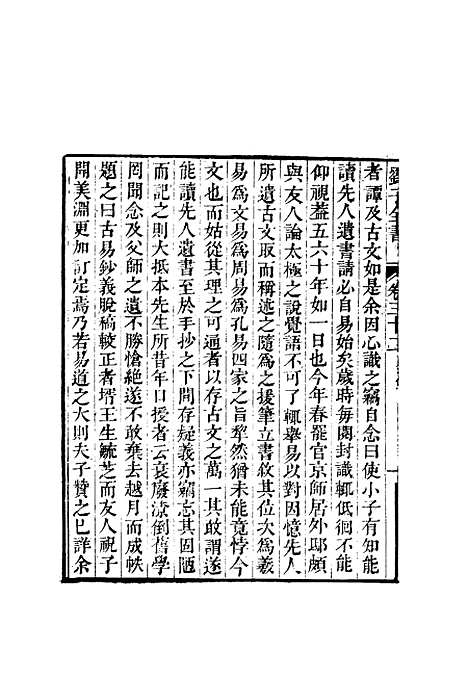 劉子全書
卷三十二
者譚及古文如是余因心識之竊自念曰使小子有知能
讀先人遺書請必自易始矣歲時每閱封識輒低徊不能
仰視蓋五六十年如一日也今年春罷官京師居外邸頗
與友人論太極之說覺語不可了輒舉易以對因憶先人
所遺古文取而稱述之隨爲之援筆立書敘其位次爲羲
易爲文易爲周易爲孔易四家之旨犂然猶未能竟悖今
文也而姑從其理之可通者以存古文之萬一其敢謂遂
能讀先人遺書至於手抄之下間存疑義亦竊忘其固陋
而記之則大抵本先生所昔年口授者云衰廢凉倒舊學
罔聞念及父師之遺不勝愴絶遂不敢棄去越月而成帙
題之曰古易鈔義脫稿較正者壻王生毓芝而友人祝子
開美淵更加訂定焉乃若易道之大則夫子贊之已詳余